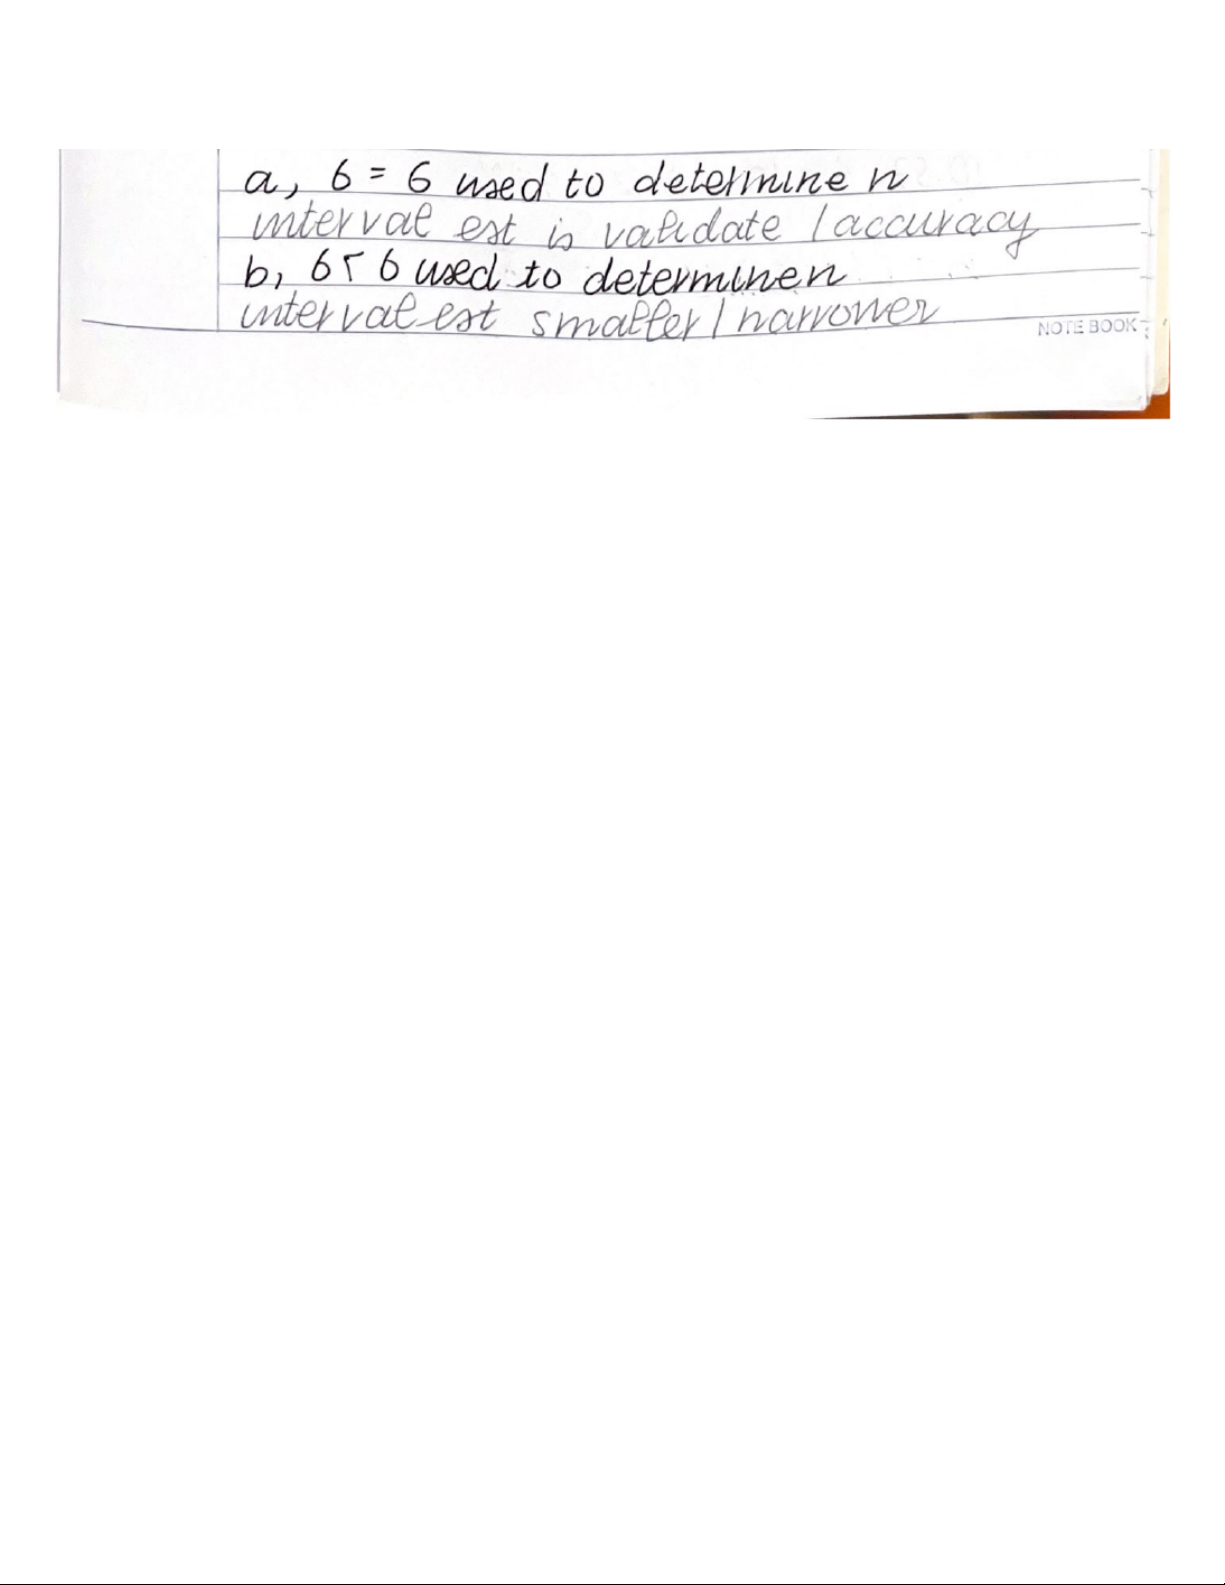 a, 6 = 6 used to determine n
interval est is validate / accuracy
b, 6 < 6 used to determine n
interval est smaller / narrower
NOTE BOOK